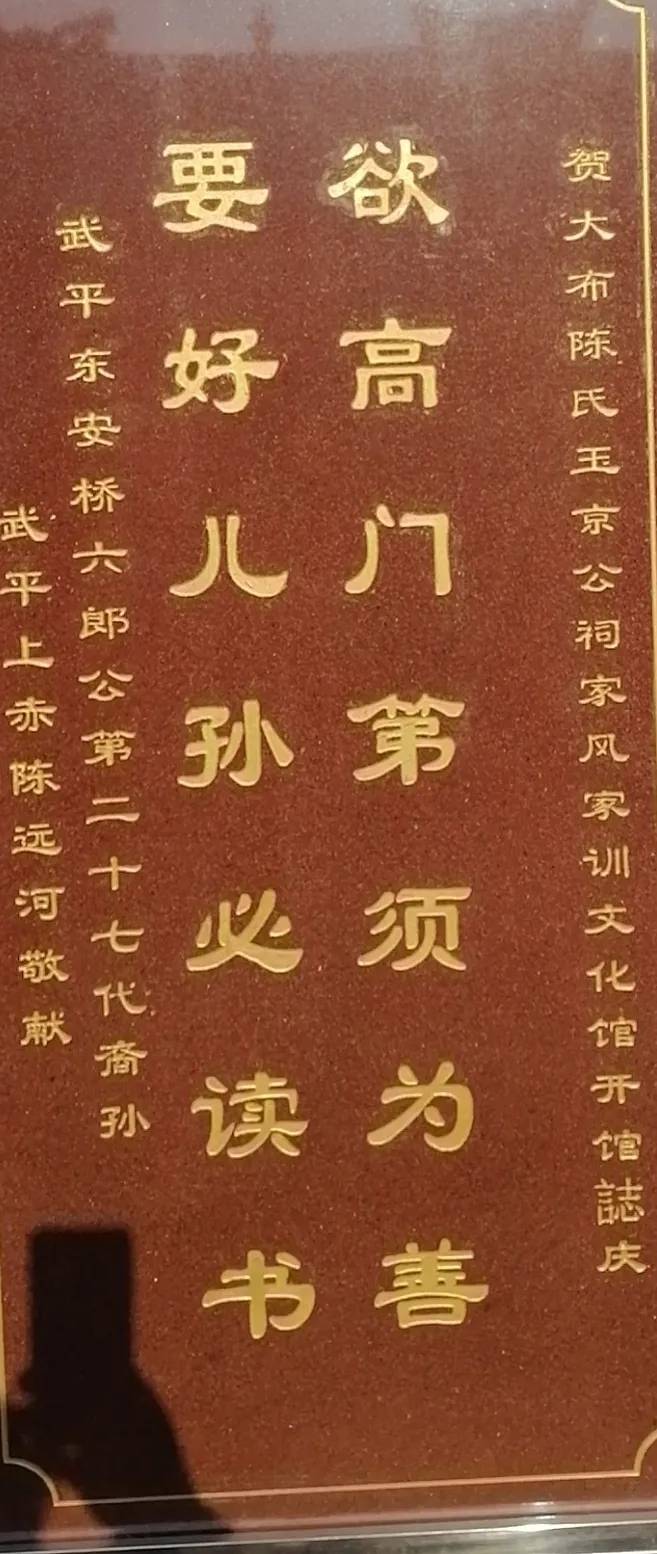 贺大布陈氏玉京公祠家风家训文化馆开馆誌庆
欲高门第须为善
要好儿孙必读书
武平东安桥六郎公第二十七代裔孙
武平上赤陈远河敬献